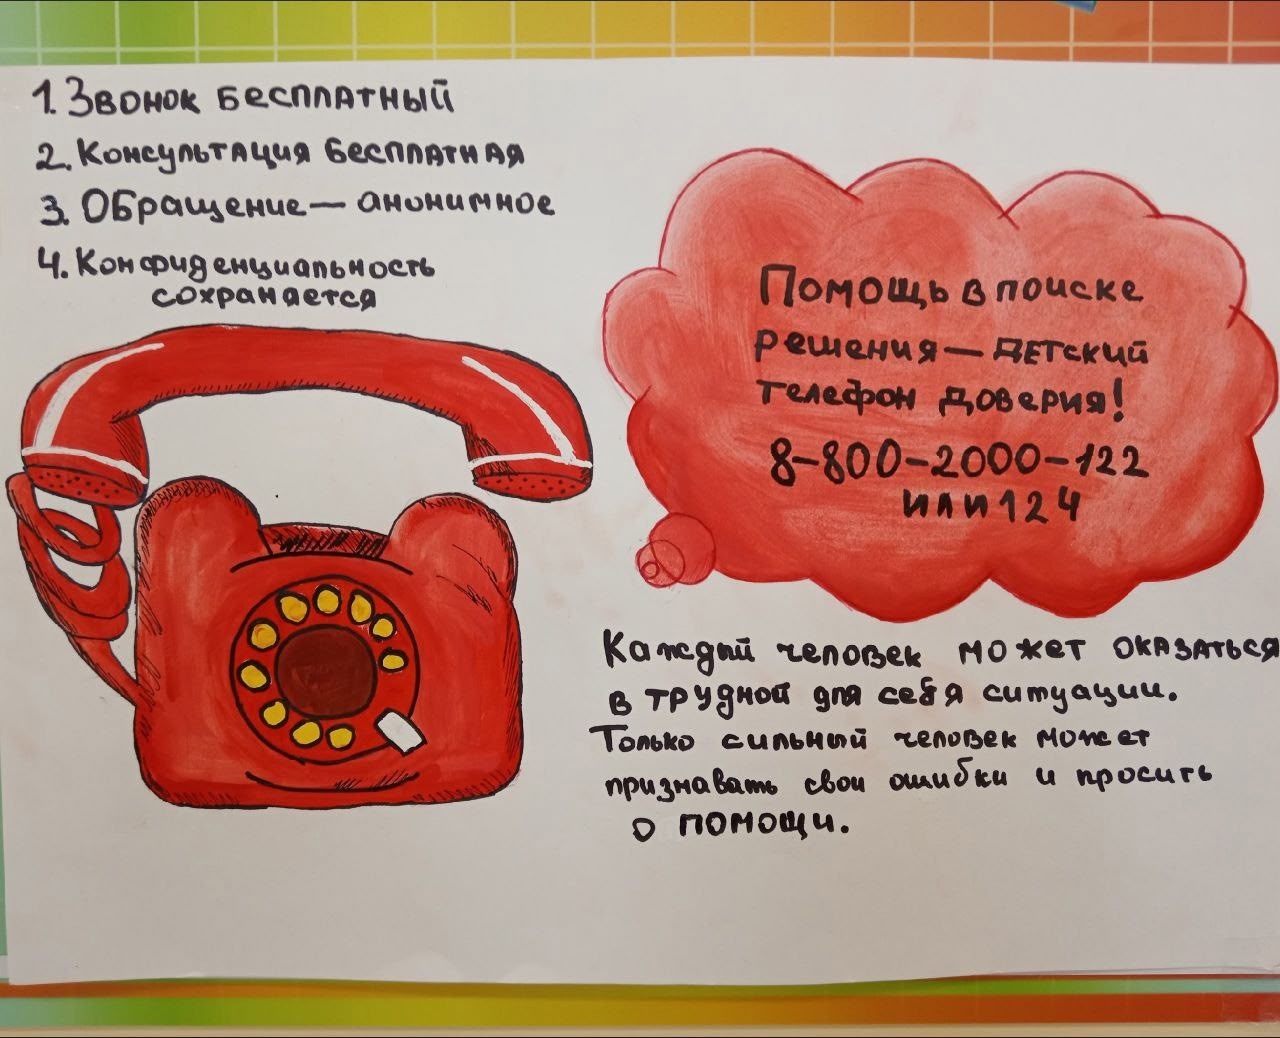 1. Звонок бесплатный
2. Консультация бесплатная
3. Обращение — анонимное
4. Конфиденциальность
сохраняется
Помощь в поиске
решения — детский
телефон доверия!
8-800-2000-122
или 124
Каждый человек может оказаться
в трудной для себя ситуации.
Только сильный человек может
признавать свои ошибки и просить
о помощи.